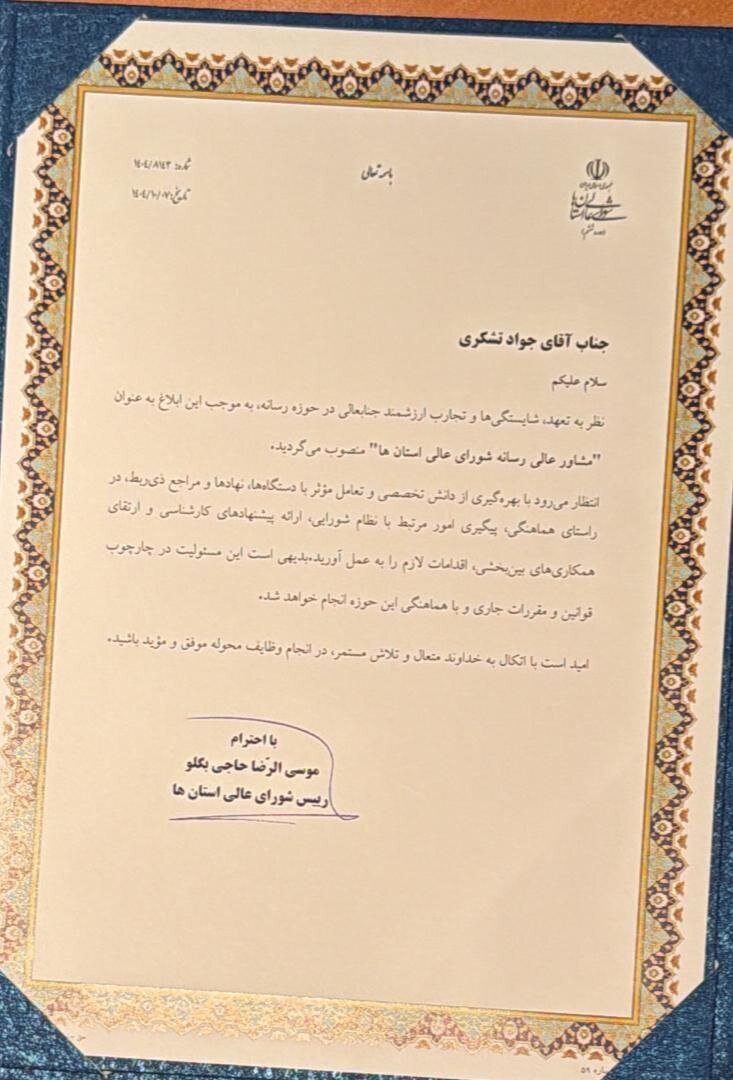 باسمه تعالی
جمهوری اسلامی ایران
شورای عالی استان‌ها
شماره: ۱۴۰۴/۸۱۴۳
تاریخ: ۱۴۰۴/۱۰/۰۷
جناب آقای جواد تشکری
سلام علیکم
نظر به تعهد، شایستگی‌ها و تجارب ارزشمند جنابعالی در حوزه رسانه، به موجب این ابلاغ به عنوان
"مشاور عالی رسانه شورای عالی استان ها" منصوب می‌گردید.
انتظار می‌رود با بهره‌گیری از دانش تخصصی و تعامل مؤثر با دستگاه‌ها، نهادها و مراجع ذی‌ربط، در
راستای هماهنگی، پیگیری امور مرتبط با نظام شورایی، ارائه پیشنهادهای کارشناسی و ارتقای
همکاری‌های بین‌بخشی، اقدامات لازم را به عمل آورید.بدیهی است این مسئولیت در چارچوب
قوانین و مقررات جاری و با هماهنگی این حوزه انجام خواهد شد.
امید است با اتکال به خداوند متعال و تلاش مستمر، در انجام وظایف محوله موفق و مؤید باشید.
با احترام
موسی الرّضا حاجی بگلو
رییس شورای عالی استان ها